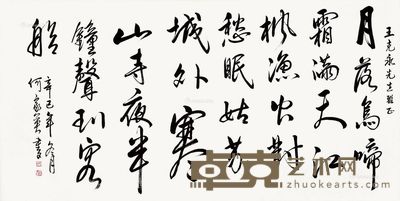 王克永先生雅正
月落烏啼
霜滿天江
楓漁火對
愁眠姑蘇
城外寒
山寺夜半
鐘聲到客
船
辛巳年冬月
何家書
卓克艺术网
zhuokearts.com